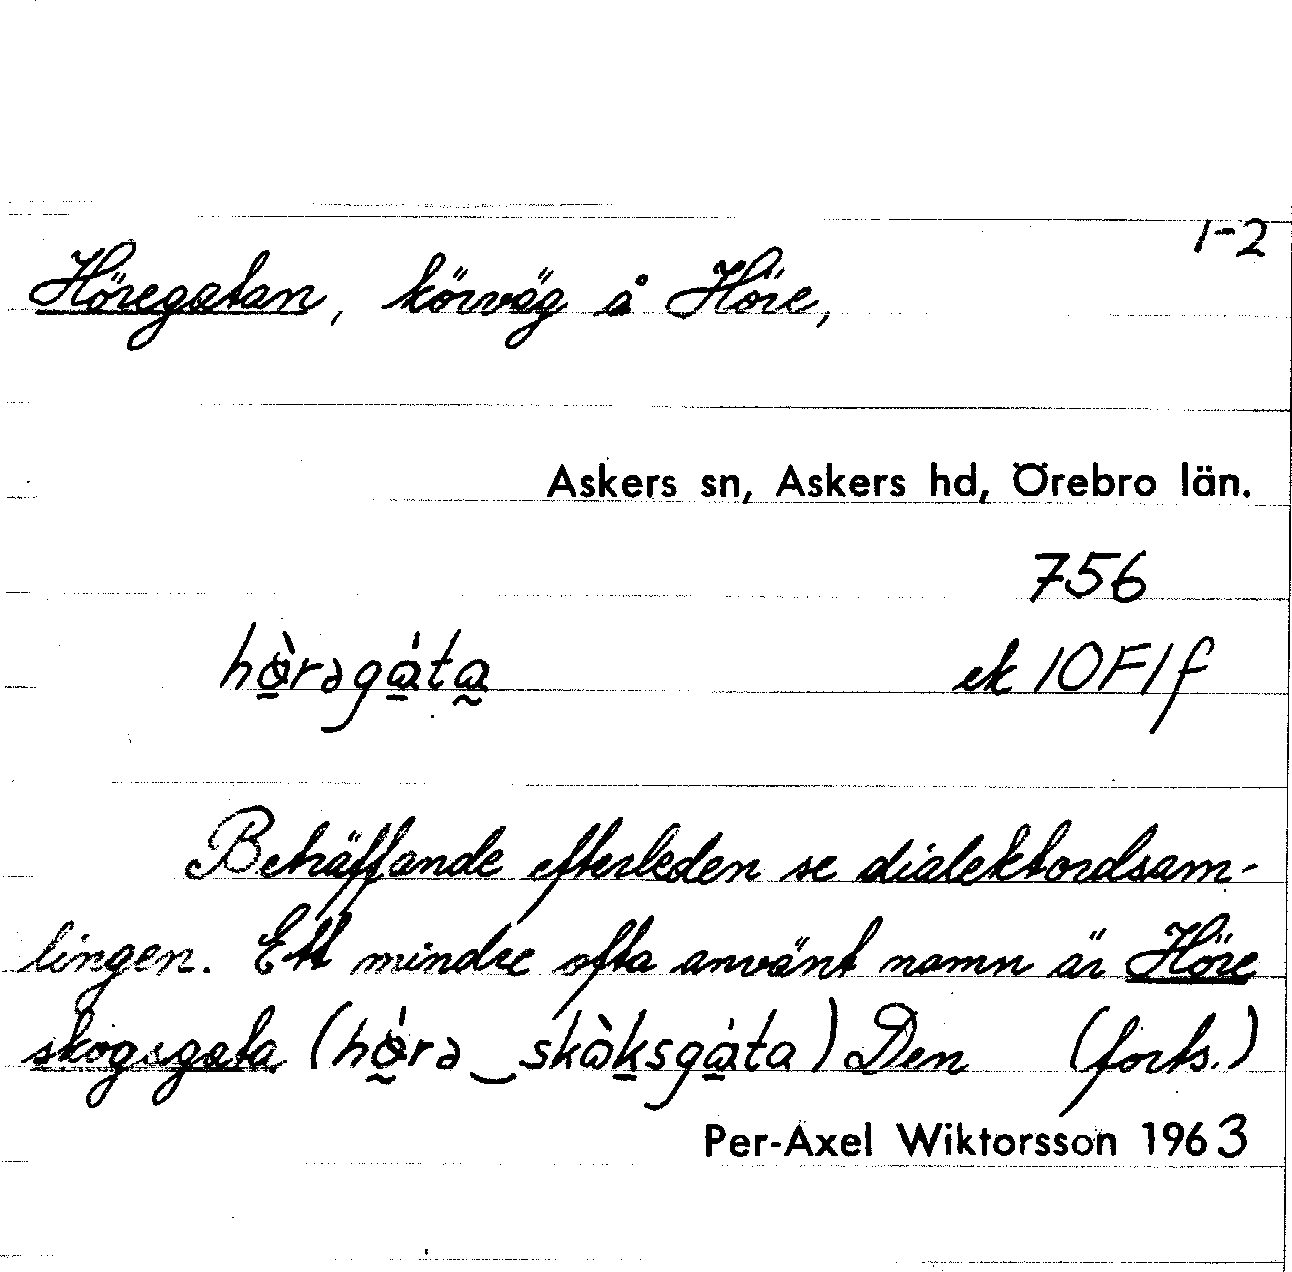 1-2
Höregatan, körväg å Höre,
Askers sn, Askers hd, Örebro län.
756
hø̀rəgáta ek 10F1f
Beträffande efterleden se dialektordsam-
lingen. Ett mindre ofta använt namn är Höre
skogsgata (hǿrə‿skòksgáta) Den (forts.)
Per-Axel Wiktorsson 1963